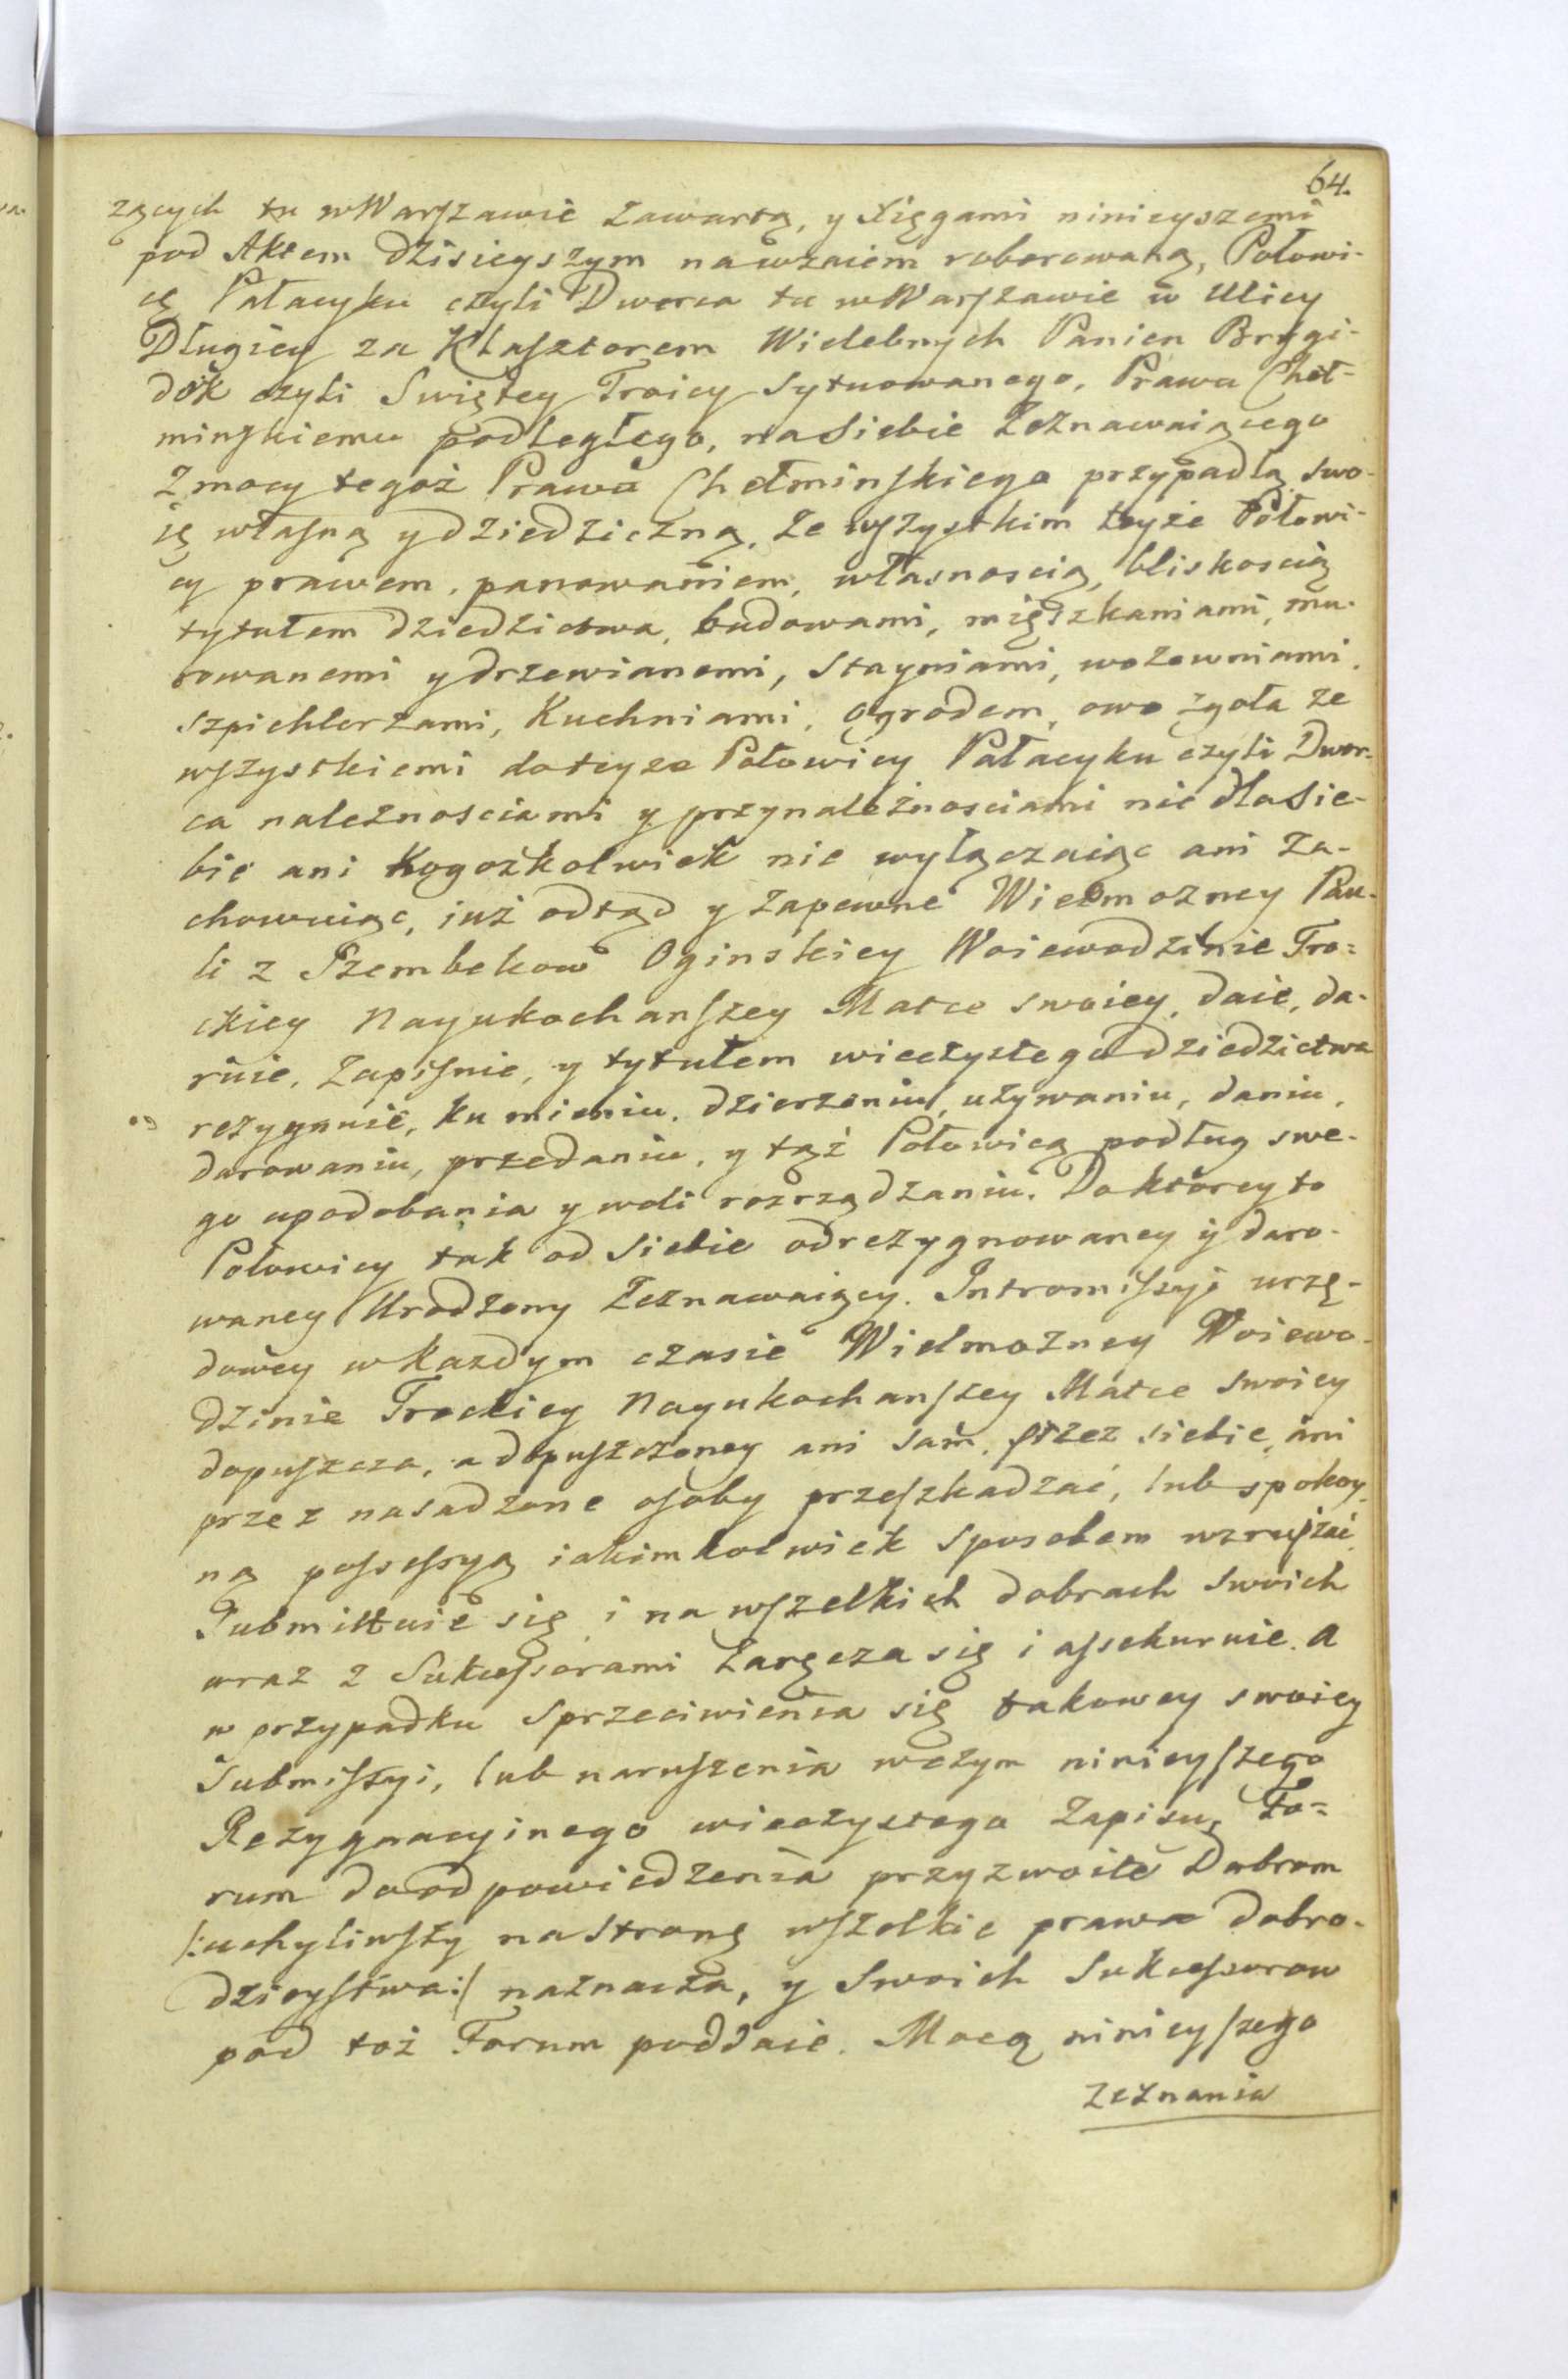 64.
zących tu w Warszawie zawartą, y Xięgami ninieyszemi
pod Aktem dzisieyszym nawzaiem roborowaną, Połowi-
cę Pałacyku czyli Dworca tu w Warszawie w Ulicy
Długiey za Klasztorem Wielebnych Panien Brygi-
dök czyli Swiętey Troicy sytuowanego, Prawu Cheł-
minskiemu podległego, na Siebie Zeznawaiącego
z mocy tegoż Prawa Chełminskiego przypadłą swo-
ię własną y dziedziczną, ze wszystkim teyże Połowi-
cy prawem, panowaniem, własnoscią, bliskoscią
tytułem dziedzictwa, budowami, mięszkaniami, mu-
rowanemi y drzewianemi, Stayniami, wozowniami,
szpichlerzami, Kuchniami, ogrodem, owo zgoła ze
wszystkiemi do teyże Połowicy Pałacyku czyli Dwor-
ca należnosciami y przynależnosciami nic dla Sie-
bie ani Kogożkolwiek nie wyłączaiąc ani za-
chowuiąc, iuż odtąd y zapewne Wielmozney Pau-
li z Szembekow Oginskiey Woiewodzinie Tro=
ckiey Nayukochanszey Matce swoiey, daie, da-
ruie, Zapisuie, y tytułem wieczystego dziedzictwa
rezygnuie, ku mieniu, dzierzeniu, używaniu, daniu,
darowaniu, przedaniu, y tąż Połowicą podług swe-
go upodobania y woli rozrządzaniu. Do ktörey to
Połowicy tak od Siebie odrezygnowaney y daro-
waney Urodzony Zeznawaiący. Intromissyi urzę-
dowey w każdym czasie Wielmożney Woiewo-
dzinie Trockiey Nayukochanszey Matce swoiey
dopuszcza, a dopuszczoney ani sam, przez siebie, ani
przez nasadzone osoby przeszkadzać, lub spokoy-
ną possessyą iakimkolwiek sposobem wzruszać
Submittuie się, i na wszelkich dobrach swoich
wraz z Sukcessorami zaręcza się i assekuruie. A
w przypadku sprzeciwienia się takowey swoiey
Submissyi, lub naruszenia w czym ninieyszego
Rezygnacyinego wieczystego Zapisu, Fo=
rum do odpowiedzenia przyzwoite Dobrom
/:uchyliwszy na stronę wszelkie prawa dobro-
dzieystwa:/ naznacza, y Swoich Sukcessorow
pod toż Forum poddaie. Mocą ninieyszego
zeznania